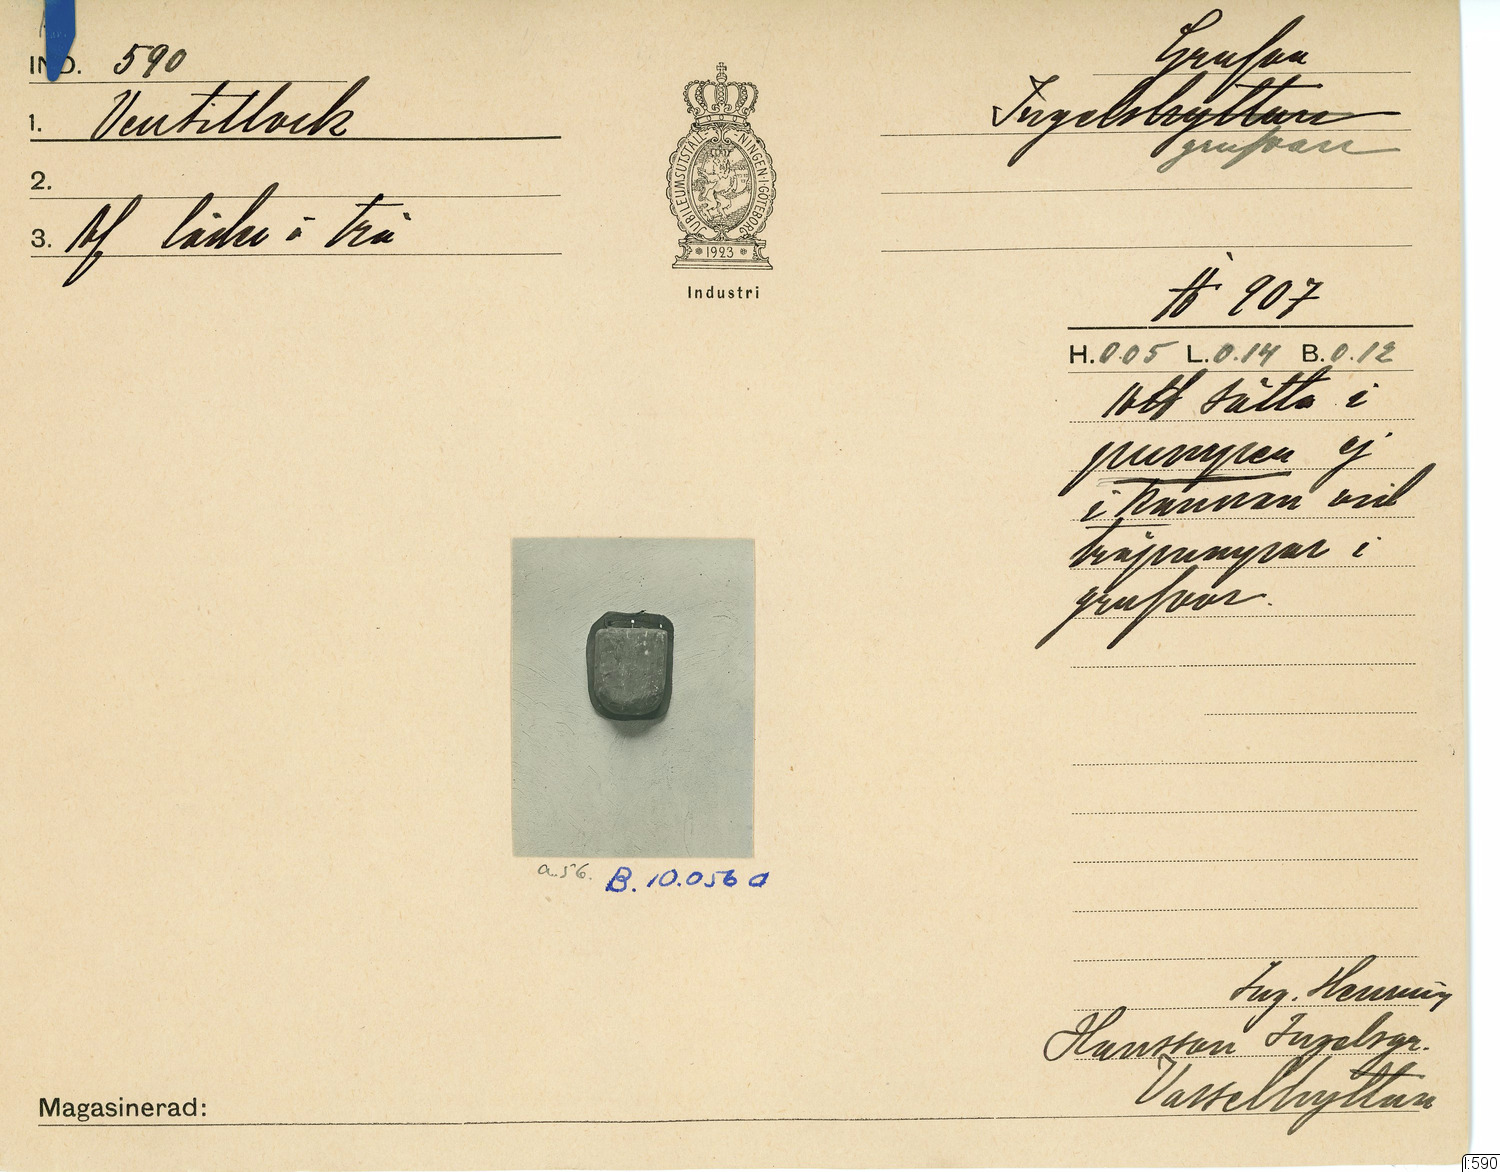 IND. 590
1. Ventillock
2.
3. Af läder å trä
JUBILEUMSUTSTÄLLNINGEN I GÖTEBORG
1923
Industri
Grufva
Ingelshyttan
grufvan
907
H. 0.05 L. 0.14 B. 0.12
Att sätta i
pumpen ej
i kannan vid
träpumpar i
grufvor.
a.56. B. 10.056 a
Ing. Henning
Hansson Ingelsgr.
Vasselhyttan
Magasinerad:
I:590